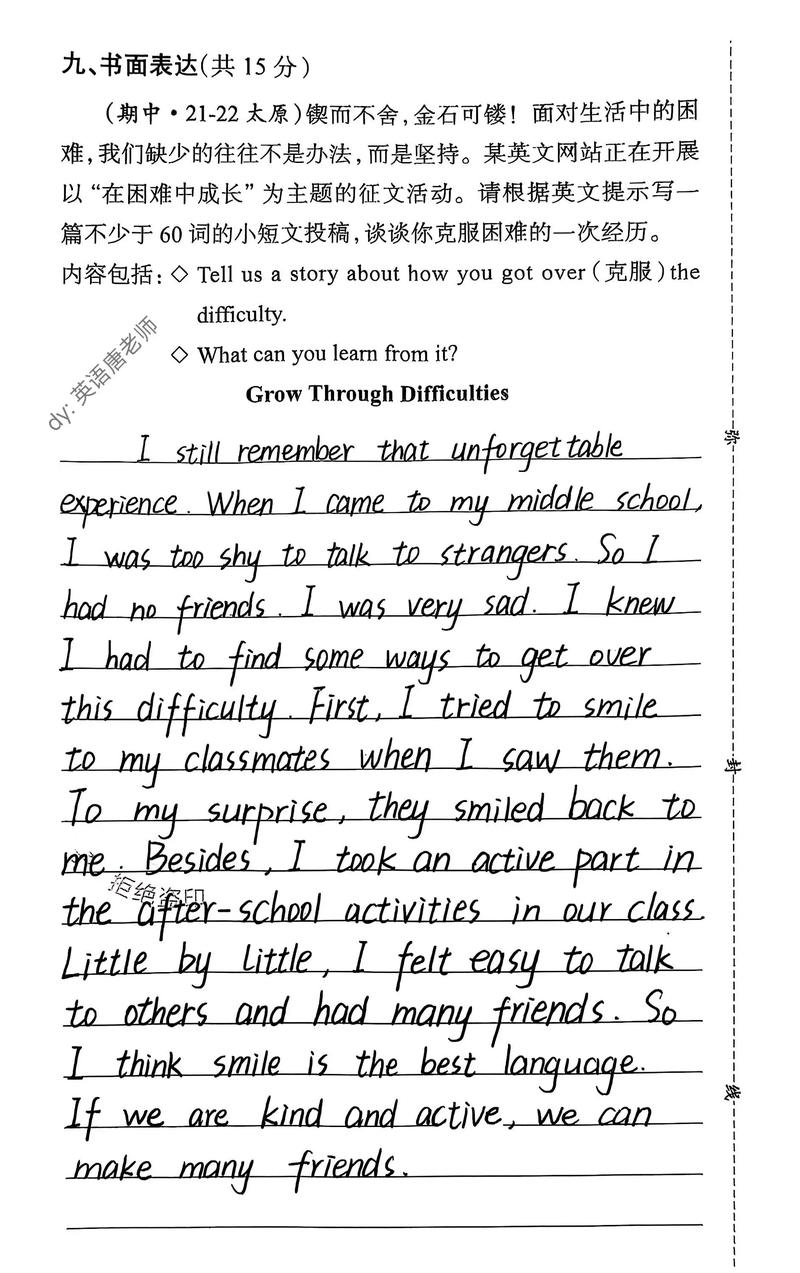 九、书面表达(共 15 分)
(期中·21-22 太原)锲而不舍,金石可镂！面对生活中的困
难,我们缺少的往往不是办法,而是坚持。某英文网站正在开展
以“在困难中成长”为主题的征文活动。请根据英文提示写一
篇不少于 60 词的小短文投稿,谈谈你克服困难的一次经历。
内容包括:◇ Tell us a story about how you got over(克服)the
difficulty.
◇ What can you learn from it?
dy: 英语唐老师
Grow Through Difficulties
I still remember that unforgettable
experience. When I came to my middle school,
I was too shy to talk to strangers. So I
had no friends. I was very sad. I knew
I had to find some ways to get over
this difficulty. First, I tried to smile
to my classmates when I saw them.
To my surprise, they smiled back to
me. Besides, I took an active part in
拒绝盗印
the after-school activities in our class.
Little by little, I felt easy to talk
to others and had many friends. So
I think smile is the best language.
If we are kind and active, we can
make many friends.
弥
封
线